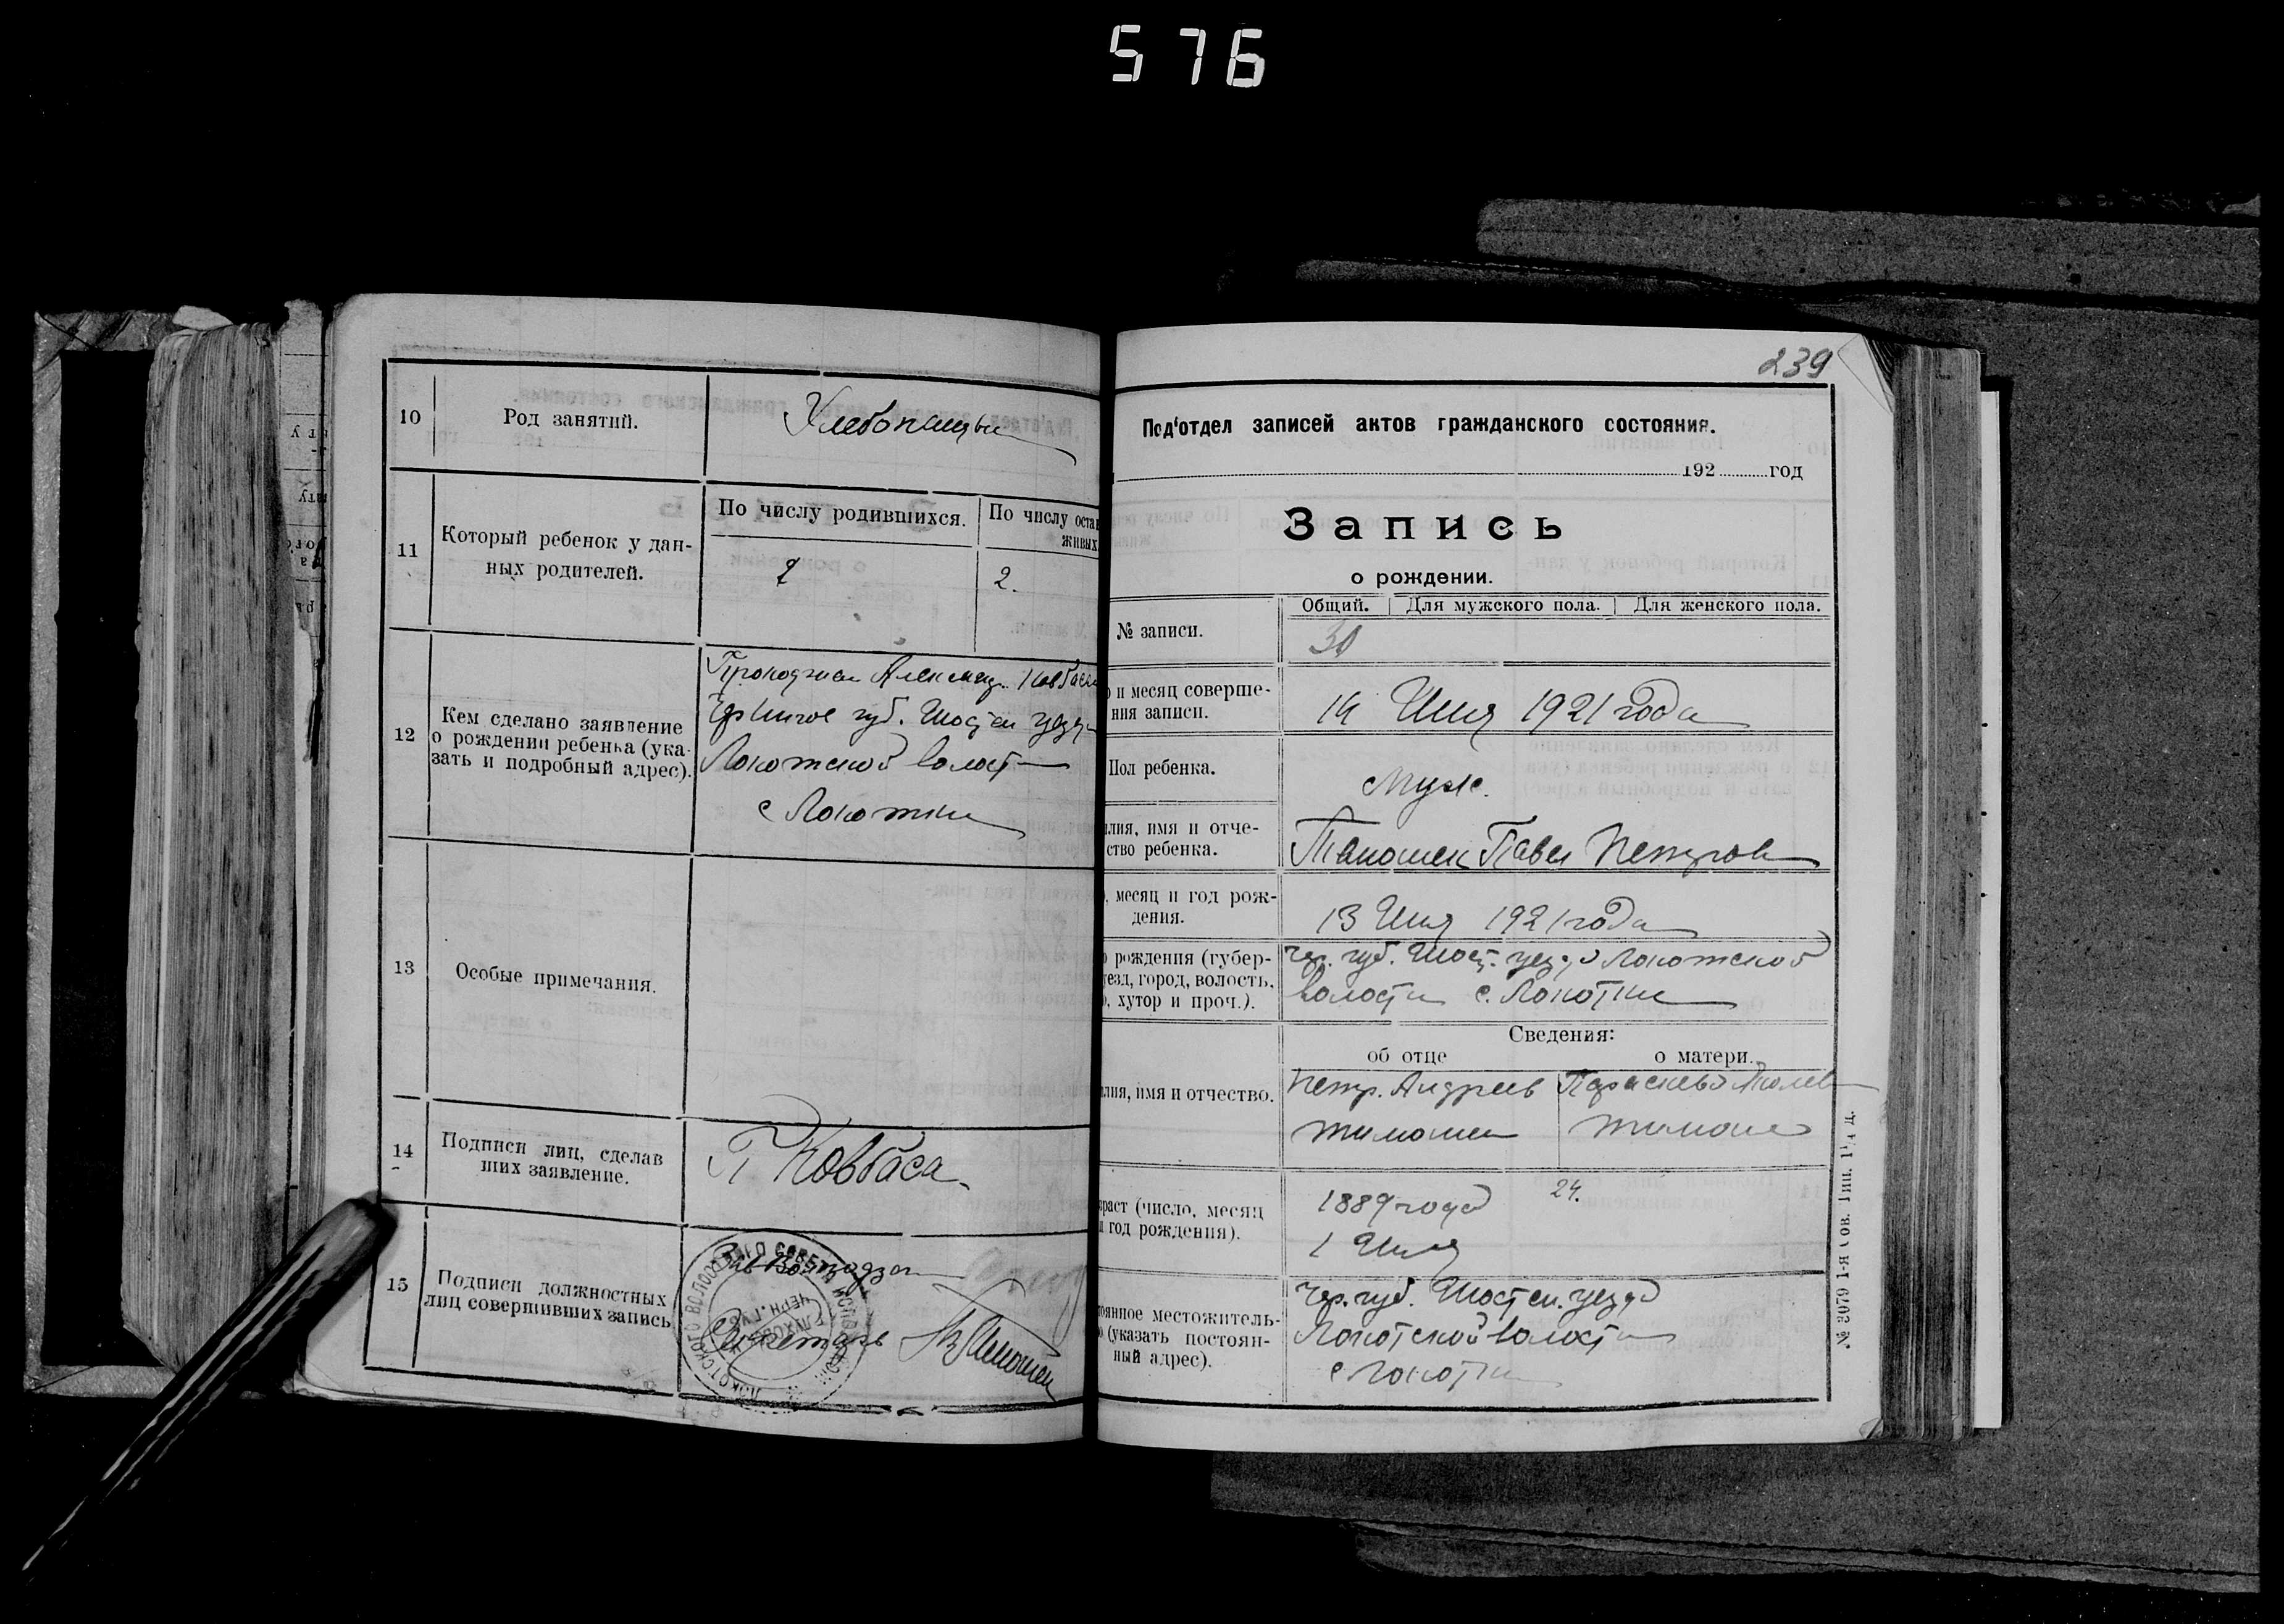 576
10
Род занятий.
Хлебопашцы
11
Который ребенок у дан-
ных родителей.
По числу родившихся.
По числу остав
живых
2
2.
12
Кем сделано заявление
о рождении ребенка (ука-
зать и подробный адрес).
Ковбаса
губ.
Локотской волост
с Локотки
13
Особые примечания.
14
Подписи лиц, сделав
ших заявление.
П Ковбаса
15
Подписи должностных
лиц совершивших запись
Секретарь
239
Под'отдел записей актов гражданского состояния.
192 год
Запись
о рождении.
Общий. Для мужского пола. Для женского пола.
№ записи.
30
о и месяц соверше-
ния записи.
14 Июня 1921 года
Пол ребенка.
Муж.
лия, имя и отче-
ство ребенка.
Павел Петров
, месяц и год рож-
дения.
13 Июня 1921 года
о рождения (губер-
уезд, город, волость,
о, хутор и проч.).
Чер. губ. Шост. уезда Локотской
волости с. Локотки
Сведения:
об отце
о матери.
лия, имя и отчество.
Петр. Андреев
Тимошен
Параскева Яковлев
Тимоше
раст (число, месяц
и год рождения).
1889 года
1 Июля
24.
тоянное местожитель-
о (указать постоян-
ный адрес).
Чер. губ. Шостен. уезда
Локотской волости
с Локотки
№ 3079 1-я Сов. Тип.